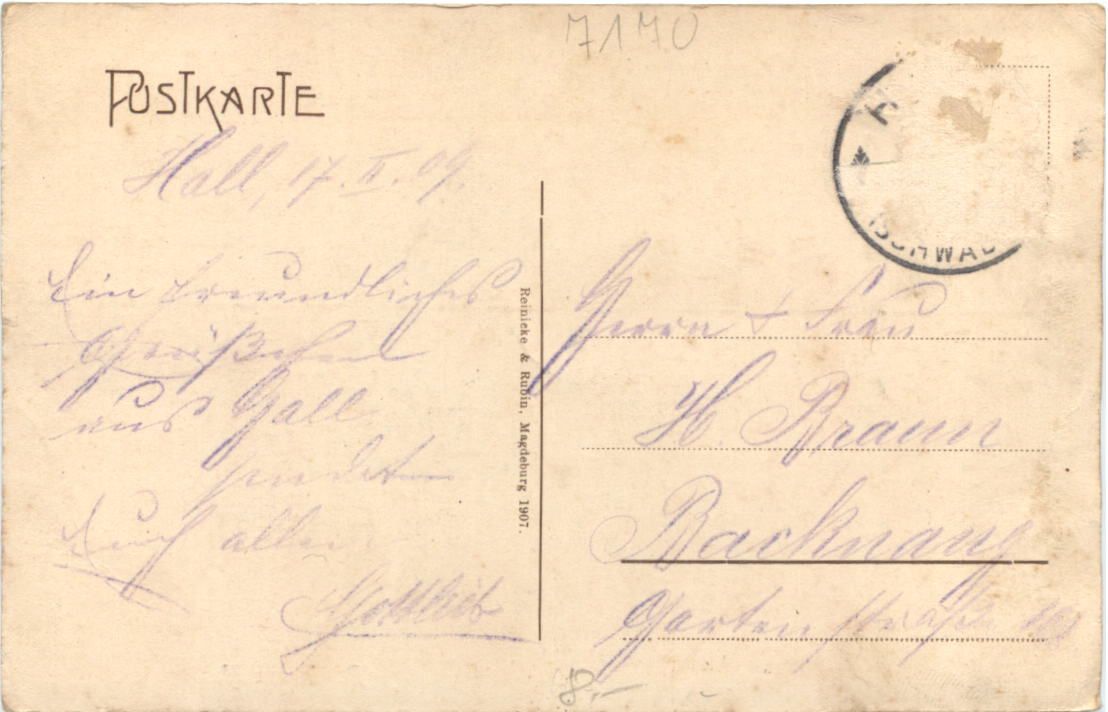 7170
POSTKARTE
Hall, 17. II. 09.
Ein freundliches
Grüßchen
aus Hall
sendet
Euch allen
Gottlieb
Reinicke & Rubin, Magdeburg 1907.
H
SCHWÄB
Herrn & Frau
H. Braun
Backnang
Gartenstraße
8.-